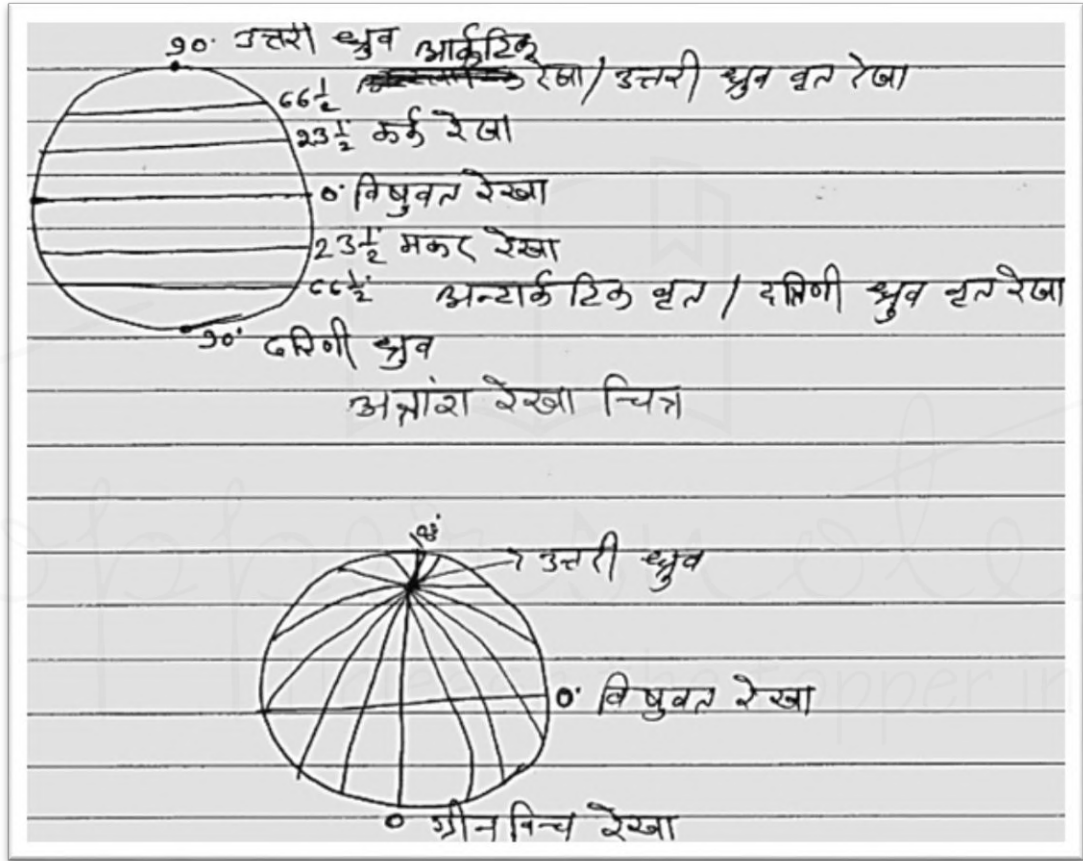 90° उत्तरी ध्रुव आर्कटिक
रेखा / उत्तरी ध्रुव वृत रेखा
66½
23½° कर्क रेखा
0° विषुवत रेखा
23½° मकर रेखा
66½° अन्टार्कटिक वृत / दक्षिणी ध्रुव वृत रेखा
90° दक्षिणी ध्रुव
अक्षांश रेखा चित्र
उत्तरी ध्रुव
0° विषुवत रेखा
0 ग्रीनविच रेखा